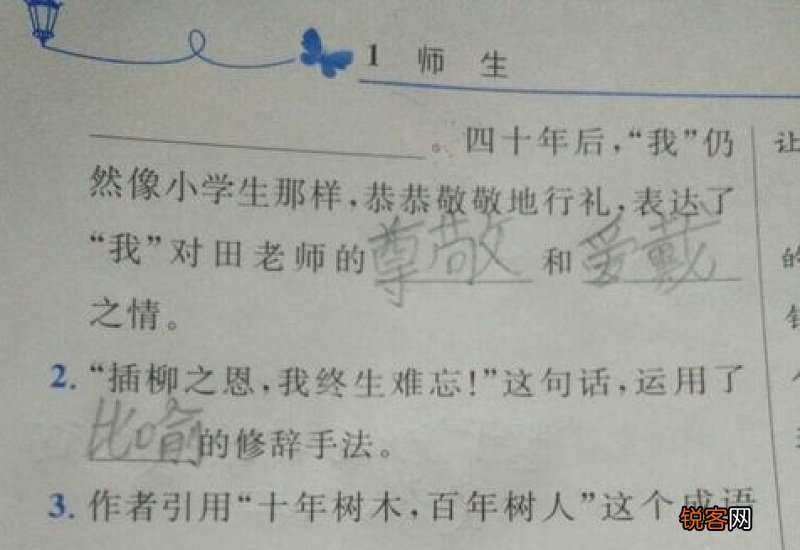 1 师 生
。四十年后，“我”仍
然像小学生那样，恭恭敬敬地行礼，表达了
“我”对田老师的尊敬和爱戴
之情。
2. “插柳之恩，我终生难忘！”这句话，运用了
比喻的修辞手法。
3. 作者引用“十年树木，百年树人”这个成语
让
的
锐客网